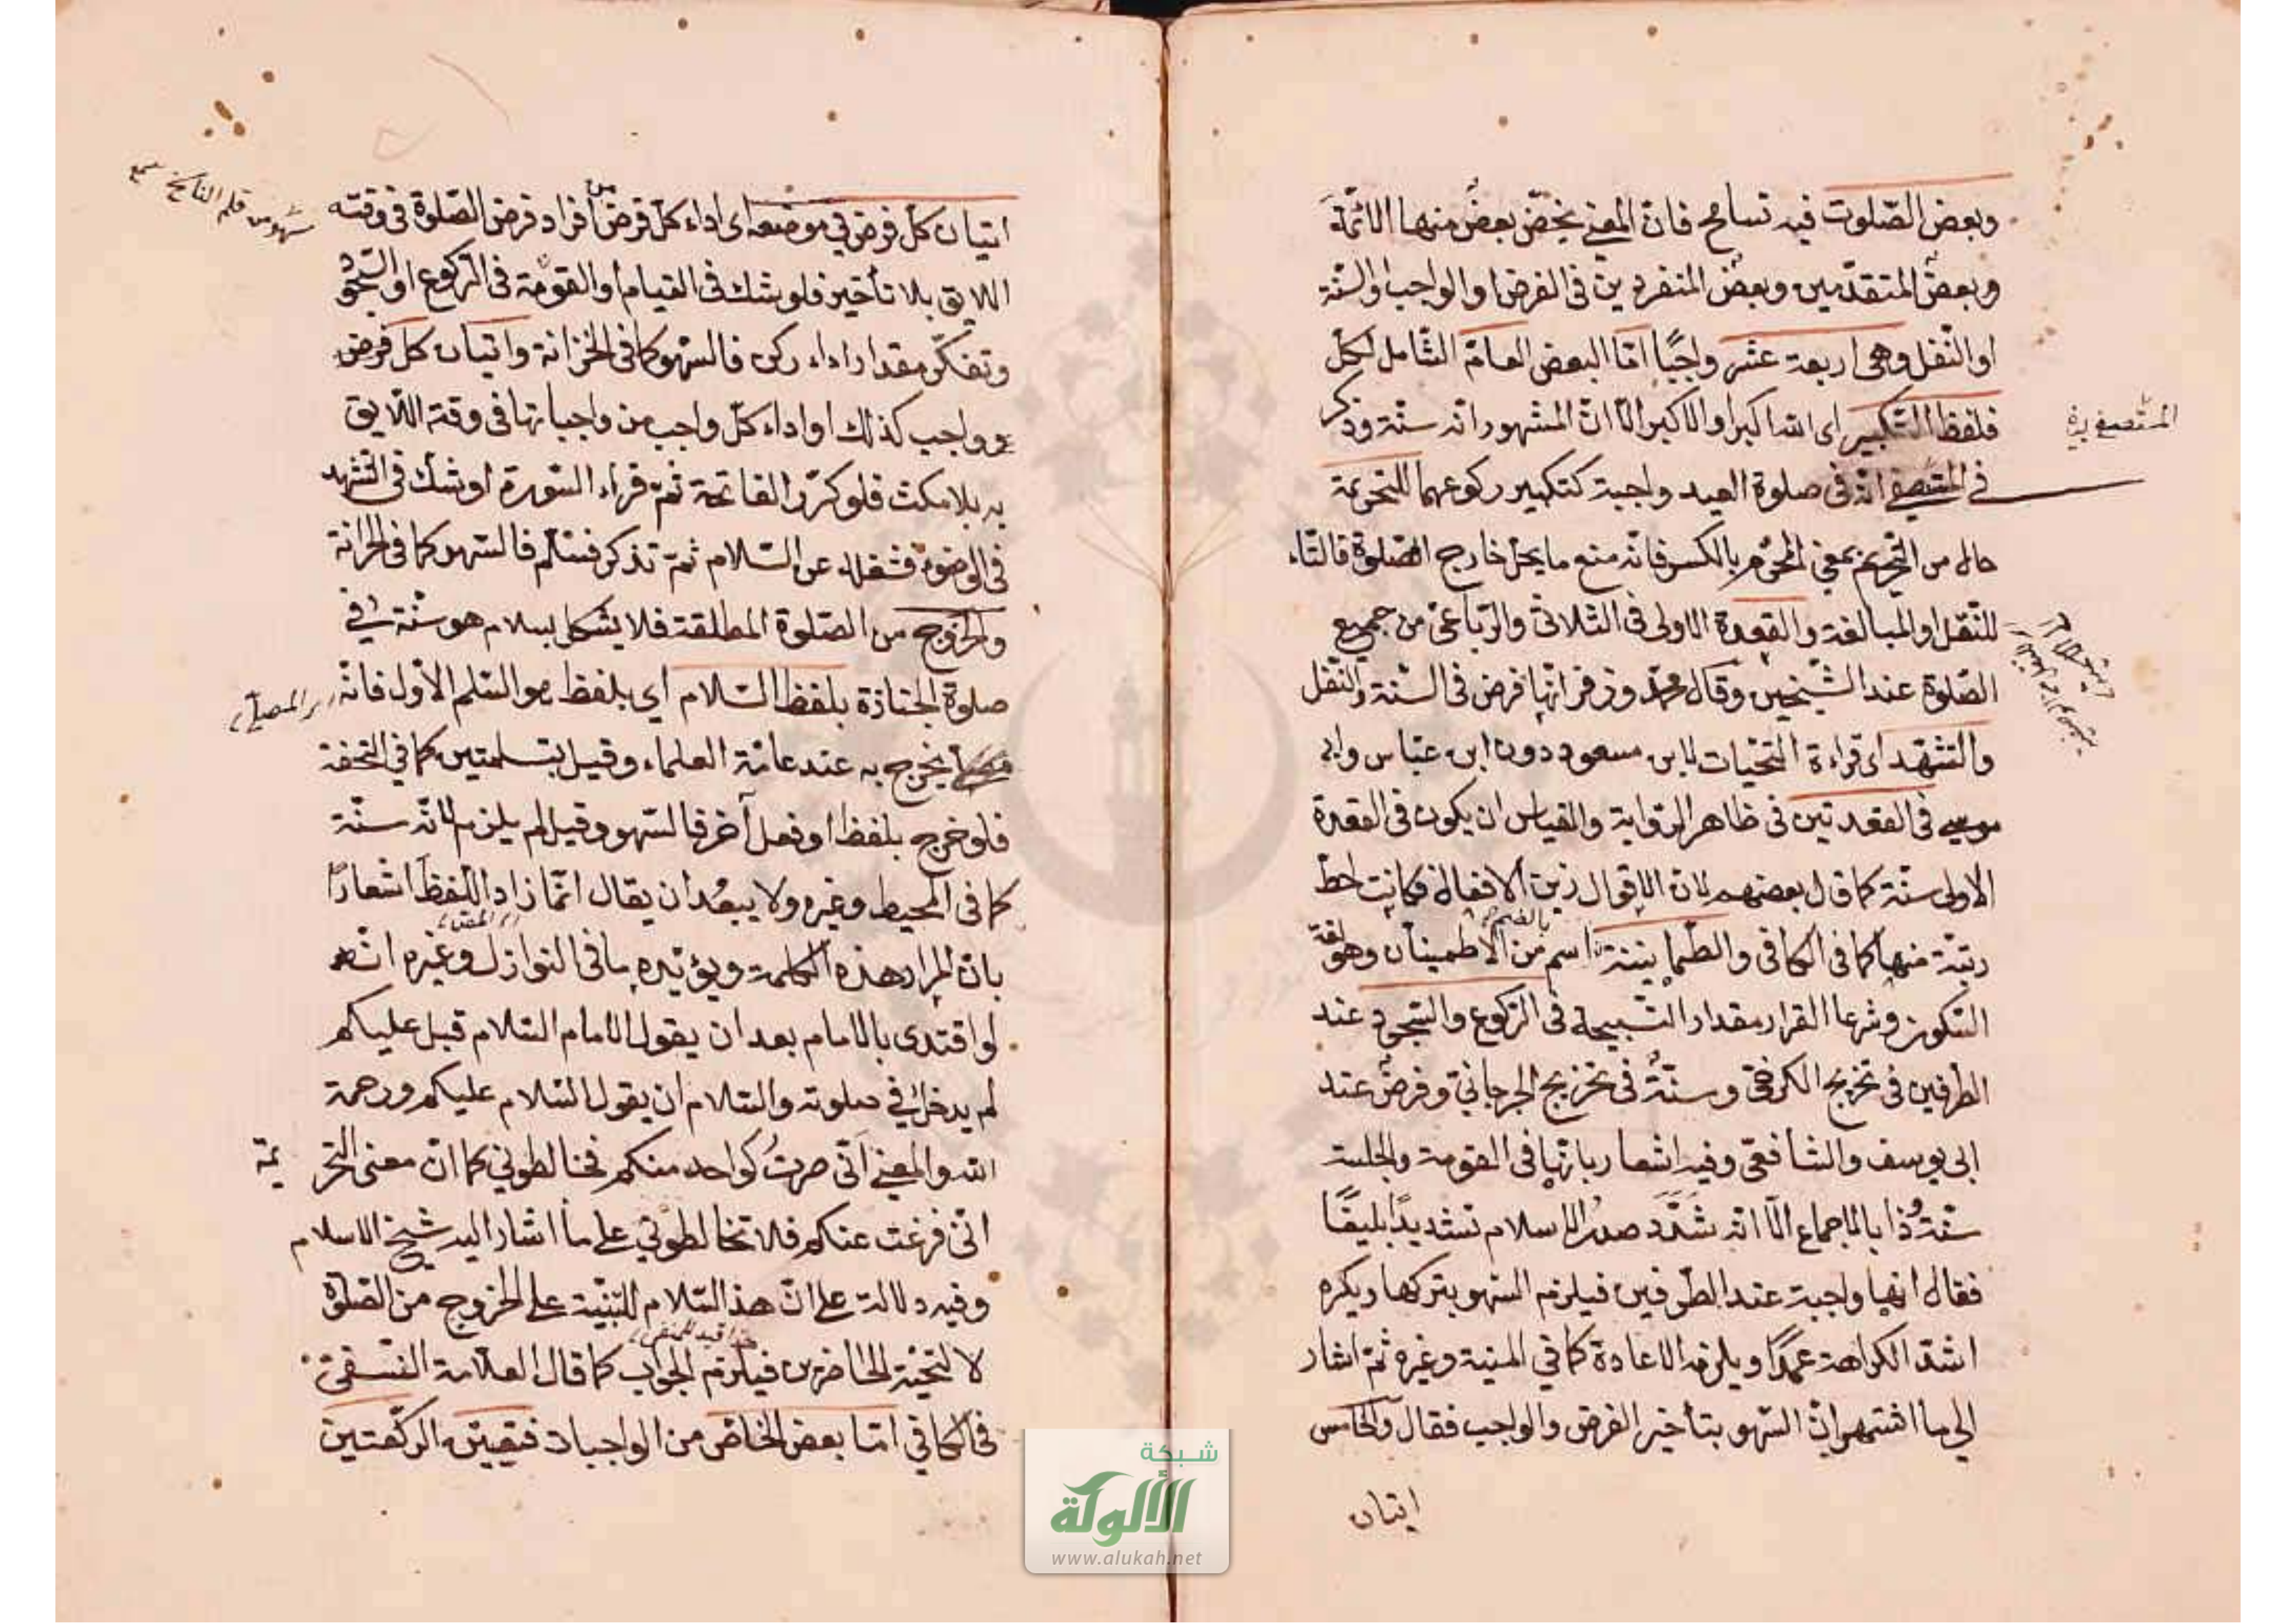 وبعض الصّلوت فيه تسامح فانّ المعنى يخصّ بعضٌ منها الائمّة
وبعضٌ المتقدّمين وبعضٌ المنفردين فى الفرض او الواجب او السّنّة
او النّفل وهى اربعة عشر واجبًا امّا البعض العامّ الشّامل لكلّ
فلفظ التّكبير اى الله اكبر او الاكبر الّا انّ المشهور انّه سنّة وذكر
في انّه فى صلوة العيد واجبة كتكبير ركوعهما للتحريمة
حال من التّحريم بمعنى المحرّم بالكسر فانّه منع ما يحلّ خارج الصّلوة فالتّاء
للنّقل او المبالغة والقعدة الاولى فى الثلاثىّ والرّباعىّ من جميع
الصّلوة عند الشّيخين وقال محمّد وزفر انّها فرض فى السّنة والنّفل
والتّشهّد اى قراءة التّحيّات لابن مسعود دون ابن عبّاس وابى
موسى فى القعدتين فى ظاهر الرّواية والقياس ان يكون فى القعدة
الاولى سنّة كما قال بعضهم لانّ الاقوال زين الافعال فكانت احطّ
رتبة منها كما فى الكافى والطّمانينة بالضّمّ اسم من الاطمينان وهو لغة
السّكون وشرعا القرار مقدار التّسبيحة فى الرّكوع والسّجود عند
الطّرفين فى تخريج الكرخىّ وسنّةٌ فى تخريج الجرجانىّ وفرضٌ عند
ابى يوسف والشّافعىّ وفيه اشعار بانّها فى القومة والجلسة
سنّة وذا بالاجماع الّا انّه شدّد صدر الاسلام تشديدًا بليغًا
فقال انّها واجبة عند الطّرفين فيلزم السّهو بتركها ويكره
اشدّ الكراهة عمدًا ويلزمه الاعادة كما في المنية وغيره ثمّ اشار
الى ما اشتهر انّ السّهو بتأخير الفرض والواجب فقال والخامس
اتيان
اتيان كلّ فرض في موضعه اى اداء كلّ فرض من افراد فرض الصّلوة فى وقته
اللّايق بلا تأخير فلو شك فى القيام او القومة فى الرّكوع او السّجود
وتفكّر مقدار اداء ركن فالسّهو كما فى الخزانة واتيان كلّ فرض
وواجب كذلك او اداء كلّ واجب من واجباتها فى وقته اللّايق
به بلا مكث فلو كرّر الفاتحة ثمّ قراء السّورة او شك فى التّشهد
فى الوضوء فشغله عن السّلام ثمّ تذكر فسلّم فالسّهو كما فى الخزانة
والخروج من الصّلوة المطلقة فلا يشكل بسلام هو سنّة في
صلوة الجنازة بلفظ السّلام اى بلفظ هو السّلم الأوّل فانّه
يخرج به عند عامّة العلماء وقيل بتسلمتين كما في التّحفة
فلو خرج بلفظ او فعل آخر فالسّهو وقيل لم يلزم لانّه سنّة
كما فى المحيط وغيره ولا يبعُد ان يقال انّما زاد اللّفظ اشعارًا
بانّ المراد هذه الكلمة ويؤيّده ما فى النوازل وغيره انّه
لو اقتدى بالامام بعد ان يقول الامام السّلام قبل عليكم
لم يدخل في صلوته والسّلام ان يقول السّلام عليكم ورحمة
الله والمعنى انّى صرتُ كواحد منكم فخالطونى كما انّ معنى التّحريمة
انّى فرغت عنكم فلا تخالطونى على ما اشار اليه شيخ الاسلام
وفيه دلالة على انّ هذا السّلام للنّيّة على الخروج من الصّلوة
لا لتحيّة الحاضرين فيلزم الجواب كما قال العلّامة النّسفىّ
فى الكافي امّا بعض الخاصّ من الواجبات فتعيّن الرّكعتين
سهو من قلم الناسخ
شبكة
الألوكة
www.alukah.net